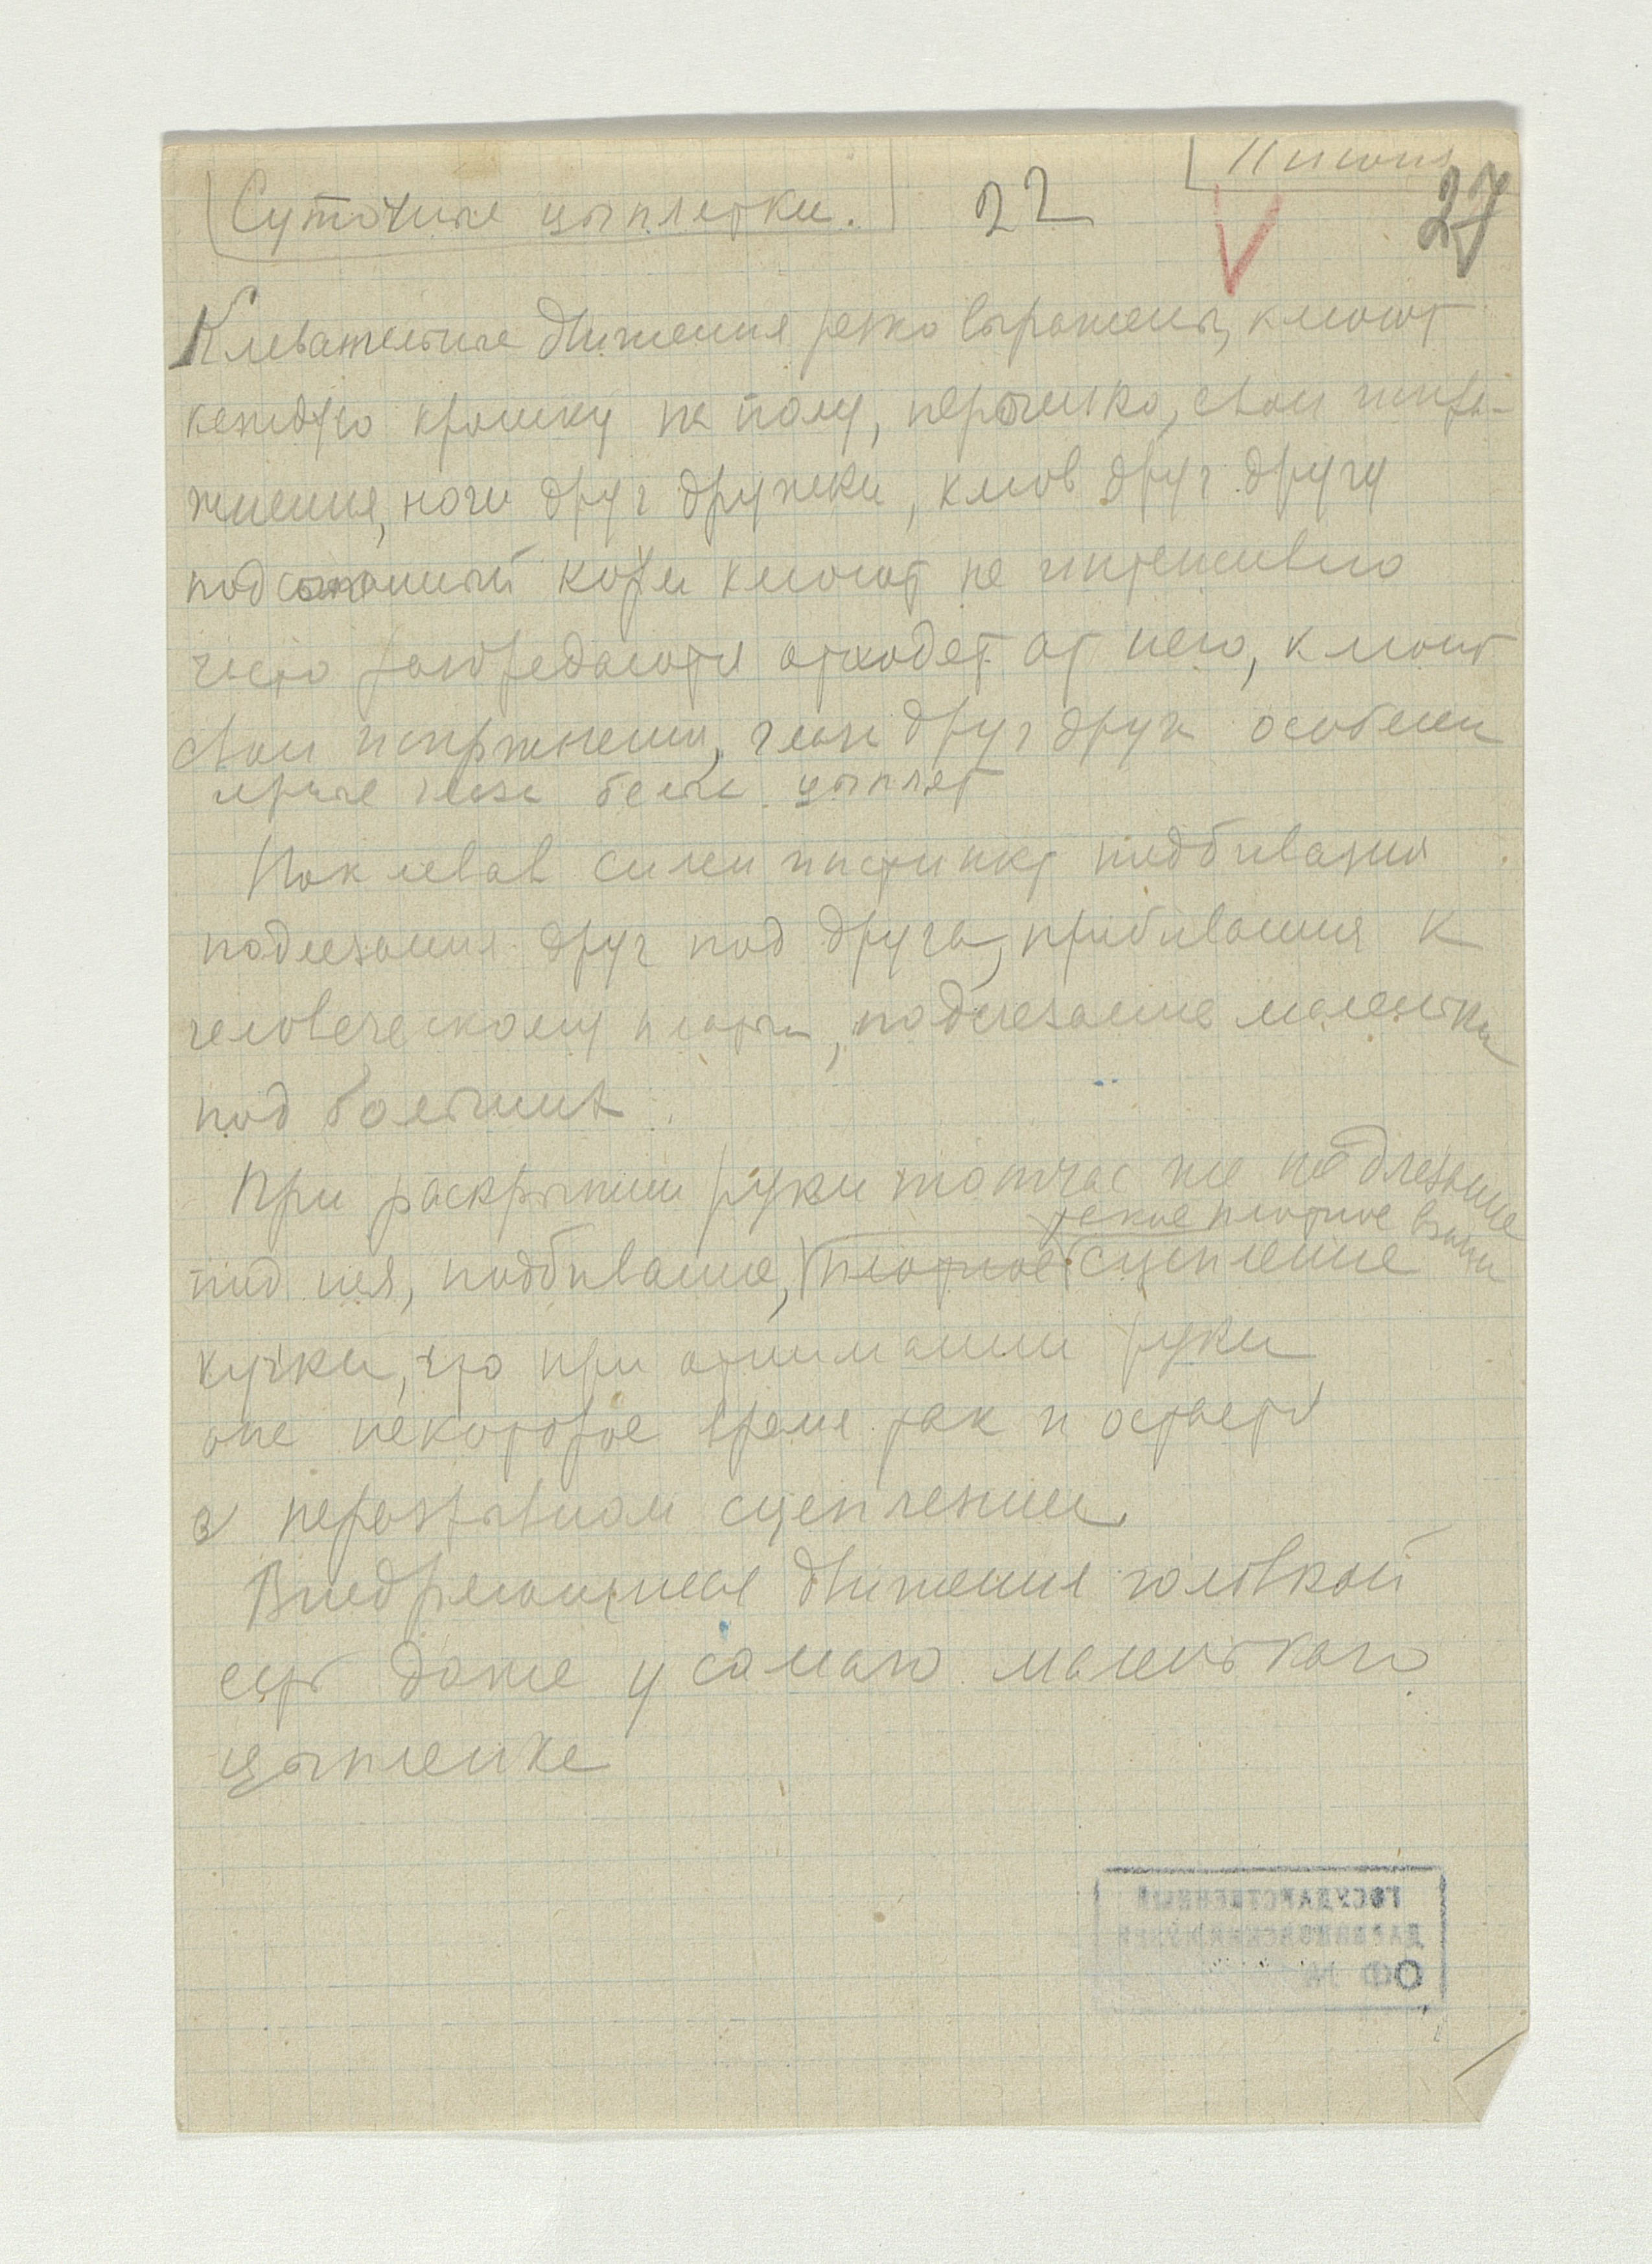 11 июня
Суточные цыплятки. 22
27
Клевательные движения резко выражены, клюют
каждую крошку на полу, перышко, свои испра-
жнения, ноги друг дружки, клюв друг другу
корм клюют не интенсивно
часто отходят от него, клюют
свои испражнения, глаза друг друга особенно
черные глаза белых цыплят
Поклевав силен инстинкт подбивания
подлезания друг под друга, прибивания к
человеческому подлезание маленьких
под больших
При раскрытии руки тотчас же подлезание
такое плотное взаим
под нея, подбивание, плотное сцепление
кучки, что при отнимании руки
оне некоторое время так и остаются
в неразрывном сцеплении.
Внедряющиеся движения головкой
есть даже у самаго маленькаго
цыпленка
ГОСУДАРСТВЕННЫЙ
ДАРВИНОВСКИЙ МУЗЕЙ
ОФ №